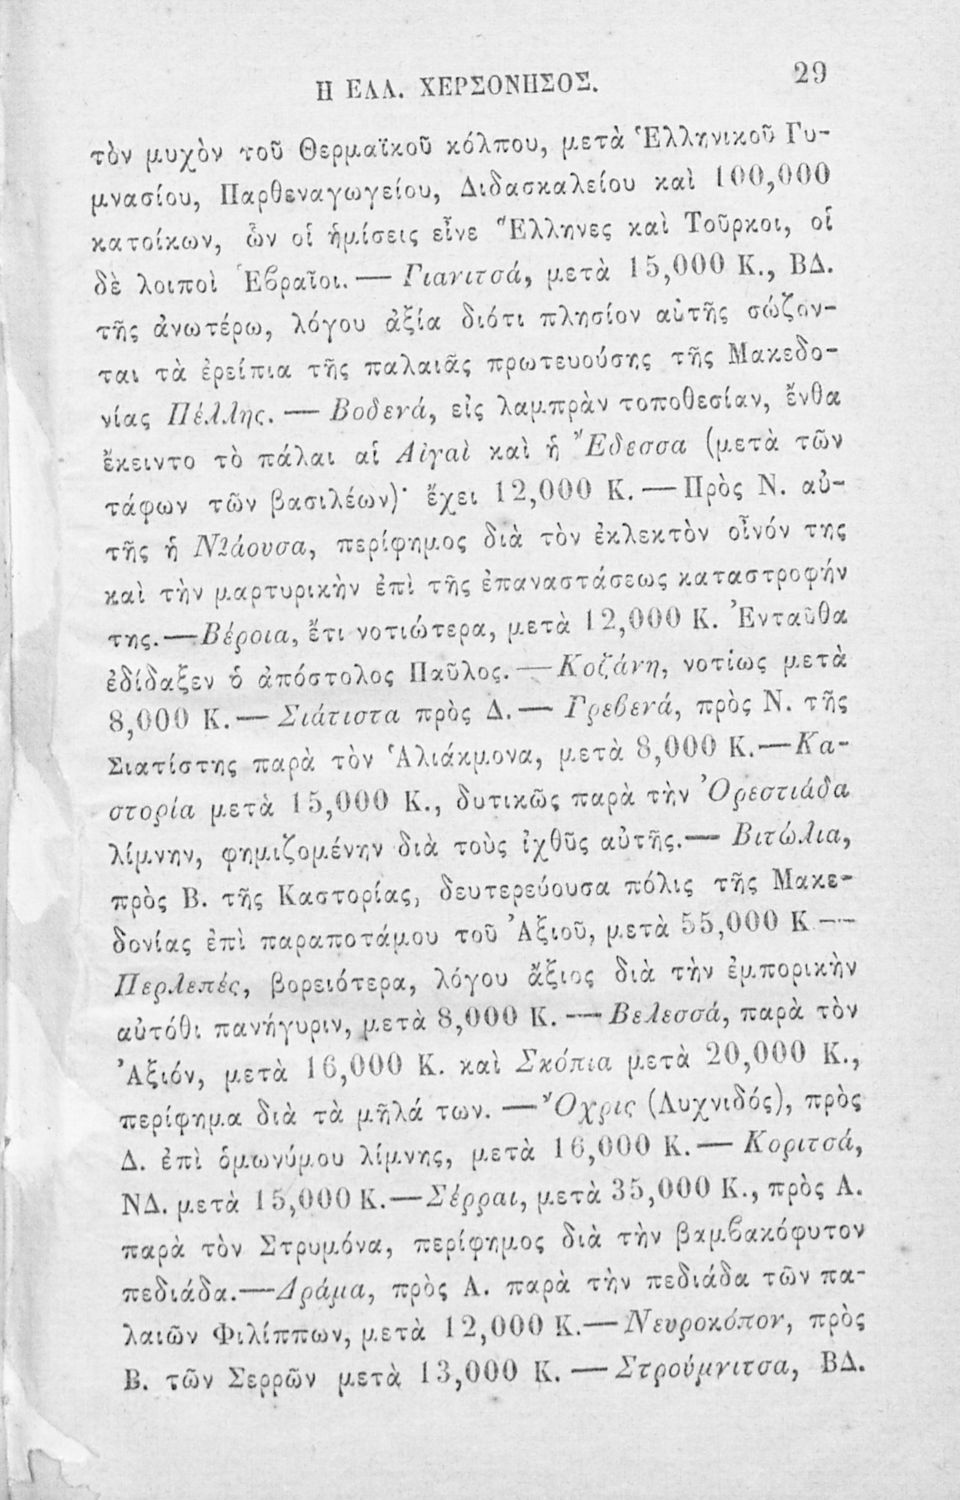 Η ΕΛΛ. ΧΕΡΣΟΝΗΣΟΣ. 29
τὸν μυχὸν τοῦ Θερμαϊκοῦ κόλπου, μετὰ Ἑλληνικοῦ Γυ-
μνασίου, Παρθεναγωγείου, Διδασκαλείου καὶ 100,000
κατοίκων, ὧν οἱ ἡμίσεις εἶνε Ἕλληνες καὶ Τοῦρκοι, οἱ
δὲ λοιποὶ Ἑβραῖοι.— Γιανιτσά, μετὰ 15,000 Κ., ΒΔ.
τῆς ἀνωτέρω, λόγου ἀξία διότι πλησίον αὐτῆς σώζον-
ται τὰ ἐρείπια τῆς παλαιᾶς πρωτευούσης τῆς Μακεδο-
νίας Πέλλης.— Βοδενά, εἰς λαμπρὰν τοποθεσίαν, ἔνθα
ἔκειντο τὸ πάλαι αἱ Αἰγαὶ καὶ ἡ Ἔδεσσα (μετὰ τῶν
τάφων τῶν βασιλέων)· ἔχει 12,000 Κ.—Πρὸς Ν. αὐ-
τῆς ἡ Νιάουσα, περίφημος διὰ τὸν ἐκλεκτὸν οἶνόν της
καὶ τὴν μαρτυρικὴν ἐπὶ τῆς ἐπαναστάσεως καταστροφήν
της.—Βέροια, ἔτι νοτιώτερα, μετὰ 12,000 Κ. Ἐνταῦθα
ἐδίδαξεν ὁ ἀπόστολος Παῦλος.—Κοζάνη, νοτίως μετὰ
8,000 Κ.— Σιάτιστα πρὸς Δ.— Γρεβενά, πρὸς Ν. τῆς
Σιατίστης παρὰ τὸν Ἁλιάκμονα, μετὰ 8,000 Κ.—Κα-
στορία μετὰ 15,000 Κ., δυτικῶς παρὰ τὴν Ὀρεστιάδα
λίμνην, φημιζομένην διὰ τοὺς ἰχθῦς αὐτῆς.— Βιτώλια,
πρὸς Β. τῆς Καστορίας, δευτερεύουσα πόλις τῆς Μακε-
δονίας ἐπὶ παραποτάμου τοῦ Ἀξιοῦ, μετὰ 55,000 Κ —
Περλεπές, βορειότερα, λόγου ἄξιος διὰ τὴν ἐμπορικὴν
αὐτόθι πανήγυριν, μετὰ 8,000 Κ. —Βελεσσά, παρὰ τὸν
Ἀξιόν, μετὰ 16,000 Κ. καὶ Σκόπια μετὰ 20,000 Κ.,
περίφημα διὰ τὰ μῆλά των. —Ὄχρις (Λυχνιδός), πρὸς
Δ. ἐπὶ ὁμωνύμου λίμνης, μετὰ 16,000 Κ.— Κοριτσά,
ΝΔ. μετὰ 15,000 Κ.—Σέρραι, μετὰ 35,000 Κ., πρὸς Α.
παρὰ τὸν Στρυμόνα, περίφημος διὰ τὴν βαμβακόφυτον
πεδιάδα.—Δράμα, πρὸς Α. παρὰ τὴν πεδιάδα τῶν πα-
λαιῶν Φιλίππων, μετὰ 12,000 Κ.—Νευροκόπον, πρὸς
Β. τῶν Σερρῶν μετὰ 13,000 Κ. — Στρούμνιτσα, ΒΔ.